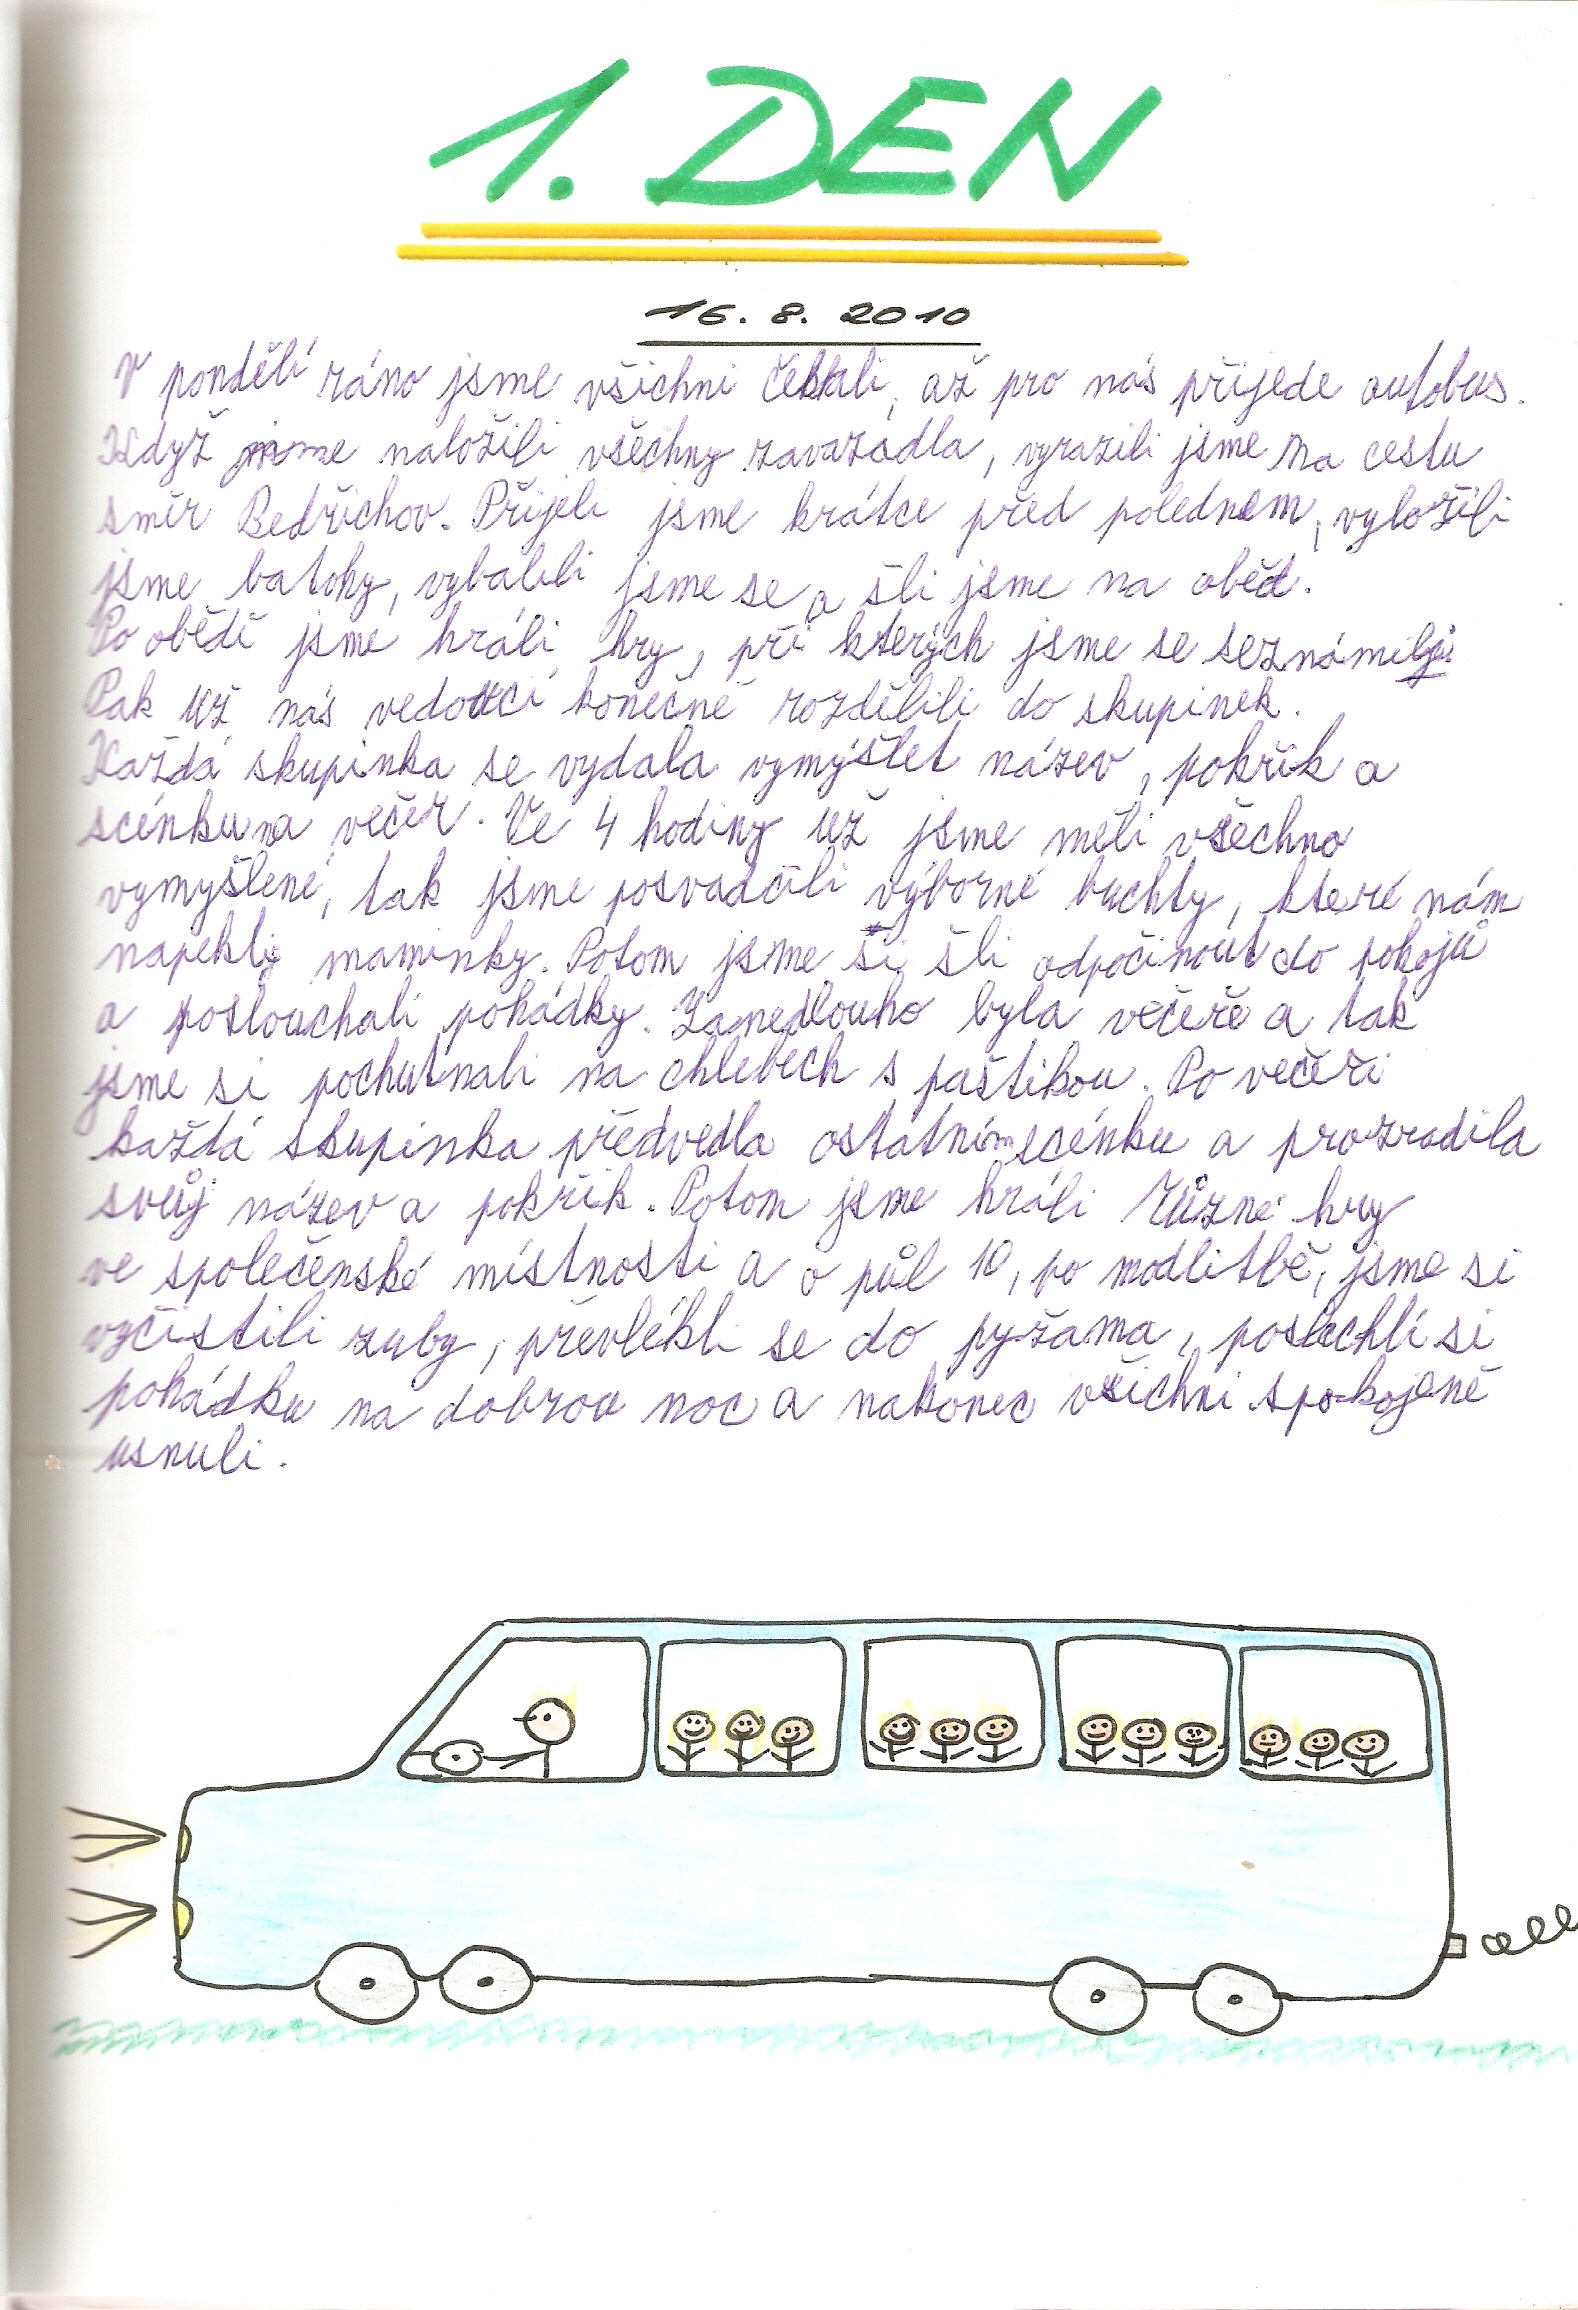 1. DEN
16. 8. 2010
V pondělí ráno jsme všichni čekali, až pro nás přijede autobus.
Když jsme naložili všechny zavazadla, vyrazili jsme na cestu
směr Bedřichov. Přijeli jsme krátce před polednem, vyložili
jsme batohy, vybalili jsme se a šli jsme na oběd.
Po obědě jsme hráli hry, při kterých jsme se seznámili.
Pak už nás vedoucí konečně rozdělili do skupinek.
Každá skupinka se vydala vymýšlet název, pokřik a
scénku na večer. Ve 4 hodiny už jsme měli všechno
vymyšlené, tak jsme posvačili výborné buchty, které nám
napekly maminky. Potom jsme si šli odpočinout do pokojů
a poslouchali pohádky. Zanedlouho byla večeře a tak
jsme si pochutnali na chlebech s paštikou. Po večeři
každá skupinka předvedla ostatním scénku a prozradila
svůj název a pokřik. Potom jsme hráli různé hry
ve společenské místnosti a o půl 10, po modlitbě, jsme si
vyčistili zuby, převlékli se do pyžama, poslechli si
pohádku na dobrou noc a nakonec všichni spokojeně
usnuli.